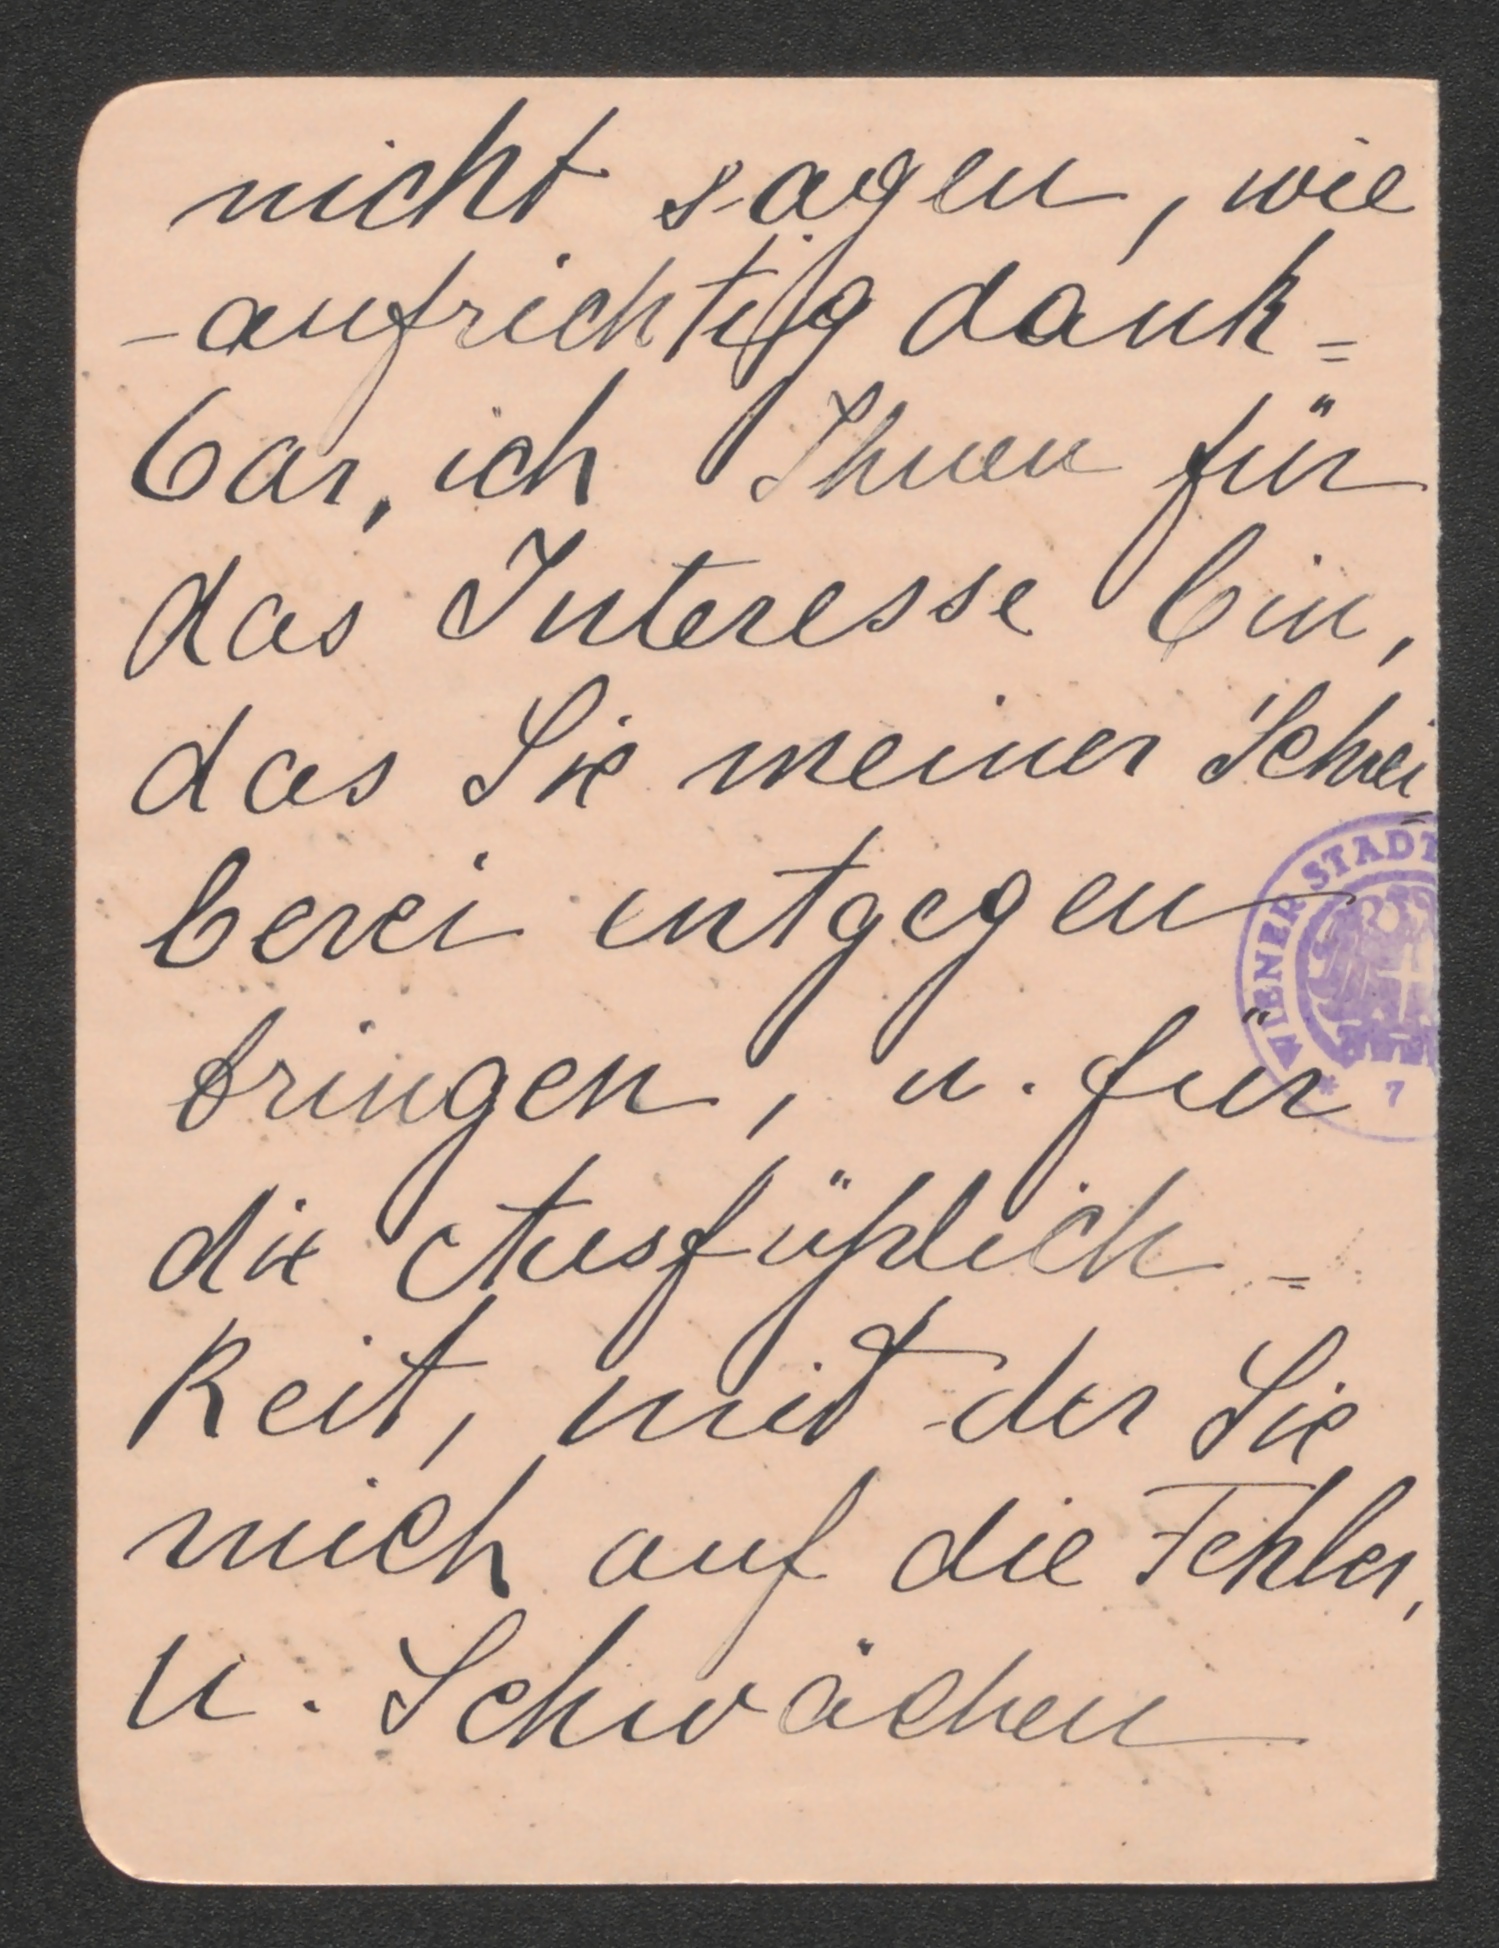 nicht sagen, wie
aufrichtig dank=
bar, ich Ihnen für
das Interesse bin,
das Sie meiner Schrei=
berei entgegen
bringen, u. für
die Ausfühlich=
keit, mit der Sie
mich auf die Fehler,
u. Schwächen
WIENER STADT
* 7